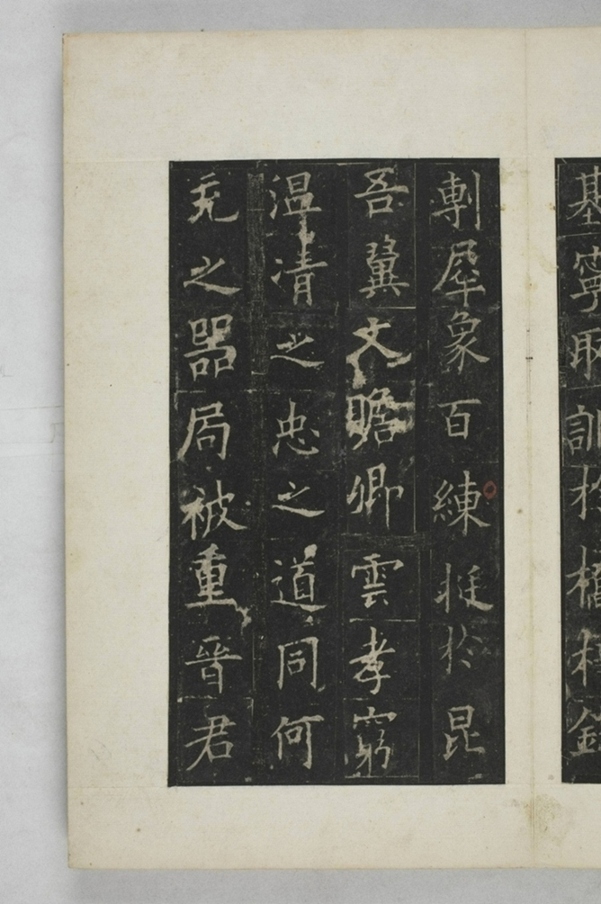 基寧取訓於橋梓鋒
剸犀象百練挺於昆
吾翼文瞻卿雲孝窮
温清之忠之道同何
充之器局被重晉君